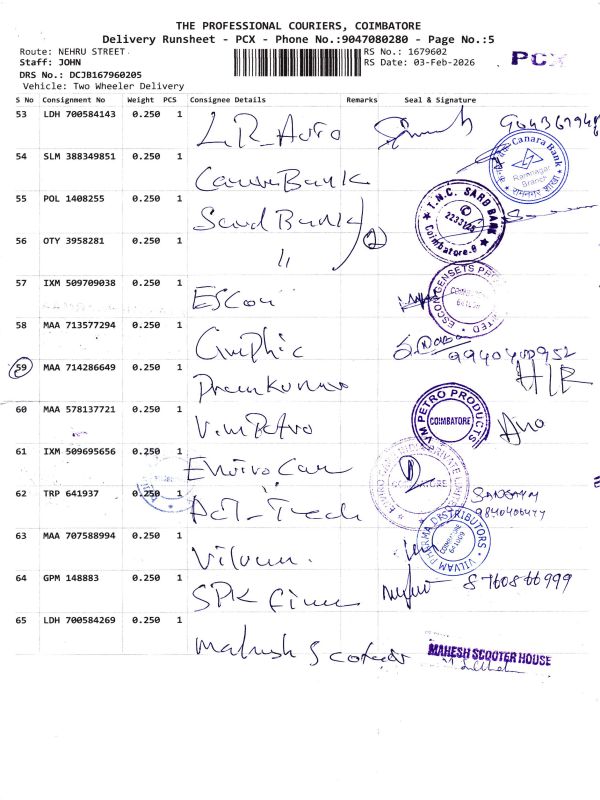 THE PROFESSIONAL COURIERS, COIMBATORE
Delivery Runsheet - PCX - Phone No.:9047080280 - Page No.:5
Route: NEHRU STREET
RS No.: 1679602
PCX
Staff: JOHN
RS Date: 03-Feb-2026
DRS No.: DCJB167960205
Vehicle: Two Wheeler Delivery
S No Consignment No Weight PCS Consignee Details Remarks Seal & Signature
53 LDH 700584143 0.250 1 L.R_Auro
54 SLM 388349851 0.250 1 Canara Bank
Canara Bank
Ramnagar
Branch
55 POL 1408255 0.250 1 Sard Bank
T.N.C. SARD BANK
Coimbatore-9
56 OTY 3958281 0.250 1 11 2
57 IXM 509709038 0.250 1 ESCon
58 MAA 713577294 0.250 1 Graphic
9940400952
59 MAA 714286649 0.250 1 Premkumar
60 MAA 578137721 0.250 1 V.m Petro
VM PETRO PRODUCTS
COIMBATORE
61 IXM 509695656 0.250 1 Enviro Care
62 TRP 641937 0.250 1
9840406477
63 MAA 707588994 0.250 1 Vilvam.
VILVAM PHARMA DISTRIBUTORS
64 GPM 148883 0.250 1 SPK
8760866999
65 LDH 700584269 0.250 1 Mahesh Scooter
MAHESH SCOOTER HOUSE